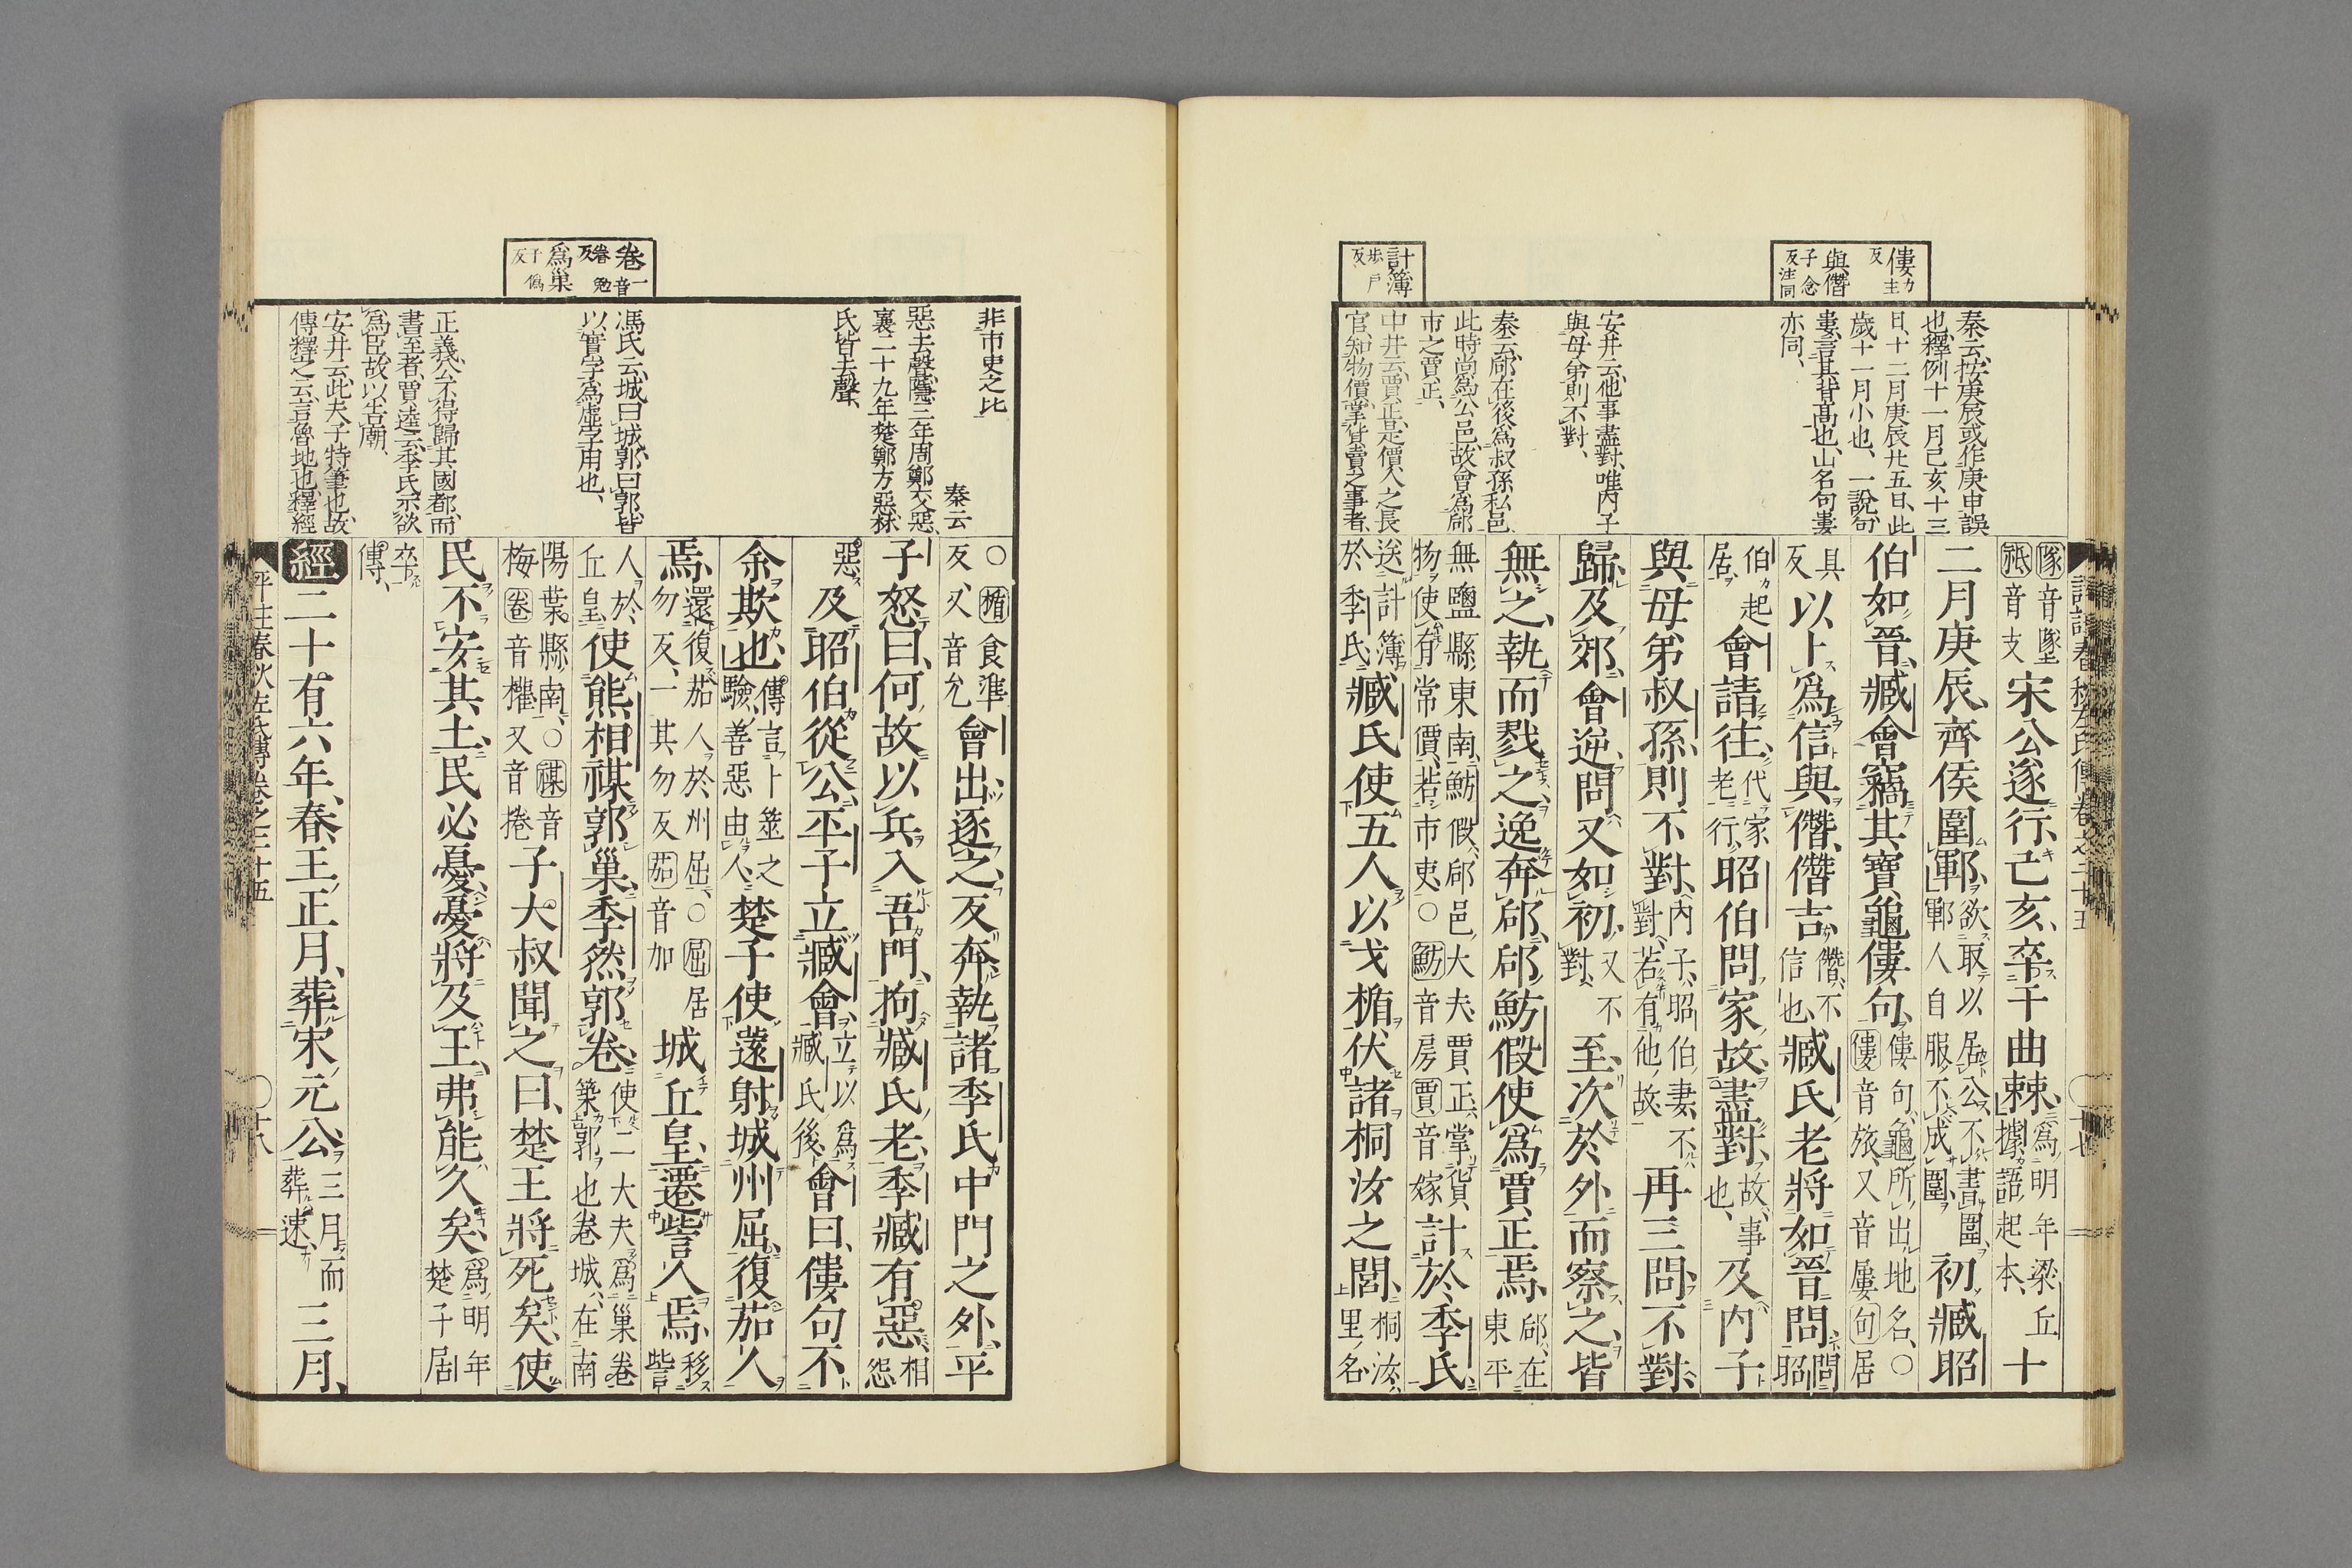 僂力
主
反
與僭
子念
反注同
計簿
步戶
反
秦云、按庚辰或作庚申誤
也、釋例十一月己亥十三
日、十二月庚辰廿五日、此
歲十一月小也、一說句
婁、言其背高也、山名句婁
亦同、
安井云、他事盡對、唯內子
與母弟則不對、
秦云、郈在後爲叔孫私邑、
此時尚爲公邑、故會爲郈
市之賈正、
中井云、賈正是價人之長
官、知物價、掌貨賣之事者、
隊音墜
祗音支
宋公遂行、己亥、卒于曲棘、爲明年梁丘
據語起本、十
二月庚辰、齊侯圍鄆、欲取以居公、不書圍、
鄆人自服、不成圍、初臧昭
伯如晉、臧會竊其寶龜僂句、僂句、龜所出地名、○
僂音旅、又音屢句居
具
反以卜、爲信與僭、僭吉、僭、不
信也、臧氏老將如晉問、問
昭
伯起
居、會請往、代家
老行、昭伯問家故、盡對、故、事
也、及內子
與母弟叔孫、則不對、內子、昭伯妻、不
對、若有他故、再三問、不對、
歸、及郊、會逆、問、又如初、又不
對、至、次於外而察之、皆
無之、執而戮之、逸奔郈、郈魴假使爲賈正焉、郈、在
東平
無鹽縣東南、魴假、郈邑大夫、賈正、掌貨
物、使有常價、若市吏、○魴音房賈音嫁計於季氏、
送計簿
於季氏、臧氏使五人以戈楯伏諸桐汝之閭、桐汝、
里名、
卷一音
眷勉
反
爲巢
于僞
反
非市吏之比
秦云
惡去聲、隱三年周鄭交惡、
襄二十九年楚鄭方惡、林
氏皆去聲、
馮氏云、城曰城、郭曰郭、皆
以實字爲虛字用也、
正義、公不得歸其國都、而
書至者、賈逵云、季氏示欲
爲臣、故以告廟、
安井云、此夫子特筆也、故
傳釋之云、言魯地也、釋經
○楯食準
反、又音允會出、逐之、反奔、執諸季氏中門之外、平
子怒曰、何故以兵入吾門、拘臧氏老、季臧有惡、相
怨
惡、及昭伯從公、平子立臧會、立以爲
臧氏後、會曰、僂句不
余欺也、傳言卜筮之
驗、善惡由人、楚子使薳射城州屈、復茄人
焉、還復茄人於州屈、○屈居
勿反、一其勿反茄音加城丘皇、遷訾人焉、移
訾
人於
丘皇、使熊相禖郭巢、季然郭卷、使二大夫爲巢卷
築郭也、卷城、在南
陽葉縣南、○禖音
梅卷音權又音捲子大叔聞之曰、楚王將死矣、使
民不安其土、民必憂、憂將及王、弗能久矣、爲明年
楚子居
卒
傳、
經二十有六年、春、王正月、葬宋元公、三月而
葬速、三月、
評註春秋左氏傳卷之二十五
○十八